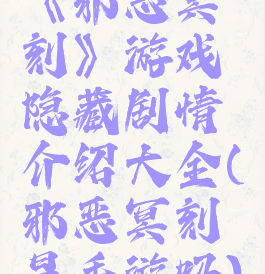 《邪恶冥
刻》游戏
隐藏剧情
介绍大全(
邪恶冥刻
是手游吗)